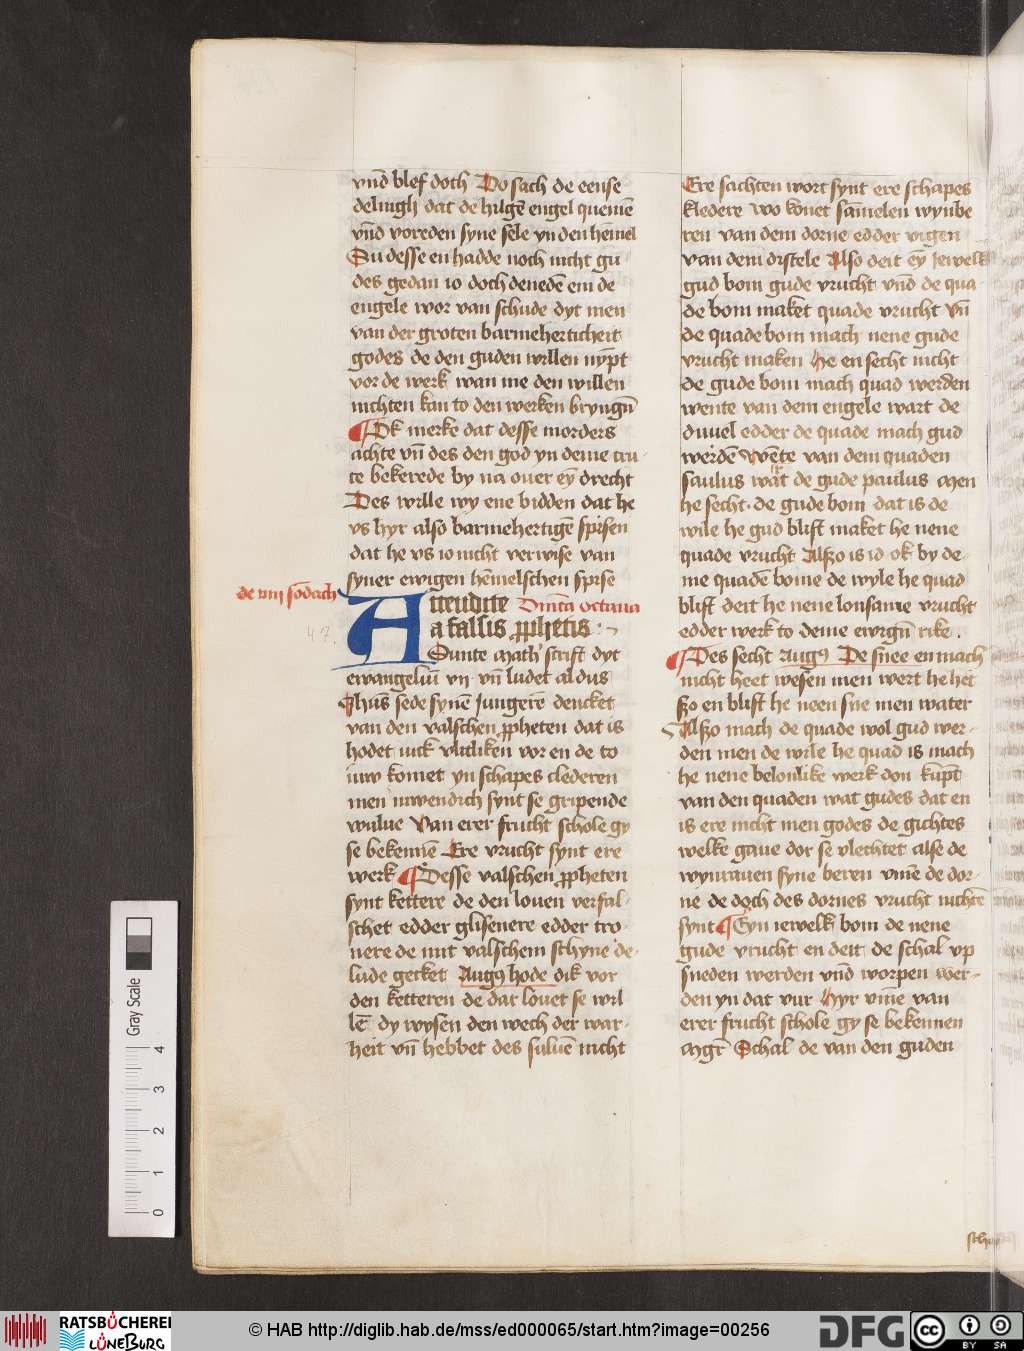 vnd̄ blef doch Do sach de eense
delingh dat de hilgē engel quemē
vn̄d voreden syne sele yn den hemel
Su desse en hadde noch nicht gu
des gedan io doch denedē em de
engele wor van schude dyt men
van der groten barmehertichert
godes de den guden willen nympt
vor de werk wan me den willen
nichten kan to den werken bryngn̄
¶ Ok merke dat desse morders
achte vn̄ des den god yn deme
te bekerede by na ouer eȳ drecht
Des wille wy ene bidden dat he
vs hyr also barmehertigē spisen
dat he vs io nicht verwise van
syner ewigen hēmelschen spise
de viij sōdach
Attendite Dn̄ica octaua
a falsis ꝓphetis
47.
Sunte Math' scrift dyt
ewangeliū vn̄ ludet aldus
Jhūs sede synē Jungerē dencket
van den valschen ꝓpheten dat is
hodet iuck vlitliken vor en de to
iuw komet yn schapes clederen
men inwendich synt se gripende
wulue Van erer frucht schole gy
se bekennē Ere vrucht synt ere
werk ¶ Desse valschen ꝓpheten
synt kettere de den louen verfal
schet edder glisenere edder tro
nere de mit valschem schyne de
lude Augꝰ hode dik vor
den ketteren de dat louet se wil
lē dy wysen den wech der war
heit vn̄ hebbet des suluē nicht
Ere sachten wort synt ere schapes
kledere wo konet sāmelen wynbe
ren van dem dorne edder vigen
van dem distele Also deit eȳ Jewelk
gud bom gude vrucht vn̄d de qua
de bom maket quade vrucht Vn̄
de quade bom mach nene gude
vrucht maken He en secht nicht
de gude bom mach quad werden
wente van dem engele wart de
duuel edder de quade mach gud
werdē Wente van dem quaden
saulus wart de gude paulus Men
he secht de gude bom dat is de
wile he gud blift maket he nene
quade vrucht Alszo is id ok by de
me quadē bome de wyle he quad
blift deit he nene lonsame vrucht
edder werk to deme ewign̄ rike .
¶ Des secht Augꝰ De snee en mach
nicht heet wesen men wert he het
szo en blift he neen sne men water
Alszo mach de quade wol gud wer
den men de wile he quad is mach
he nene belonlike werk don kūpt
van den quaden wat gudes dat en
is ere nicht men godes de gichtes
welke gaue dor se vlechtet alse de
wynrauen syne beren vm̄e de dor
ne de doch des dornes vrucht nichtē
synt ¶ Eyn iewelk bom de nene
gude vrucht en deit de schal vp
sneden werden vnd worpen wer
den yn dat vur Hyr vm̄e van
erer frucht schole gy se bekennen
Mgr̄ Schal de van den guden
Gray Scale
4
3
2
1
0
RATSBÜCHEREI
LÜNEBURG
© HAB http://diglib.hab.de/mss/ed000065/start.htm?image=00256
DFG
cc
BY SA